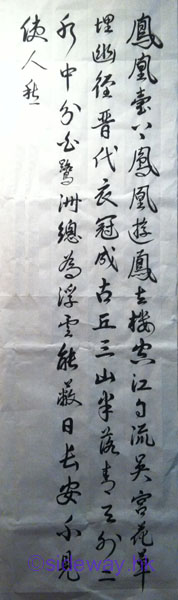 鳳凰臺上鳳凰遊鳳去樓空江自流吳宮花草
埋幽徑晉代衣冠成古丘三山半落青天外二
水中分白鷺洲總為浮雲能蔽日長安不見
使人愁
©sideway.hk